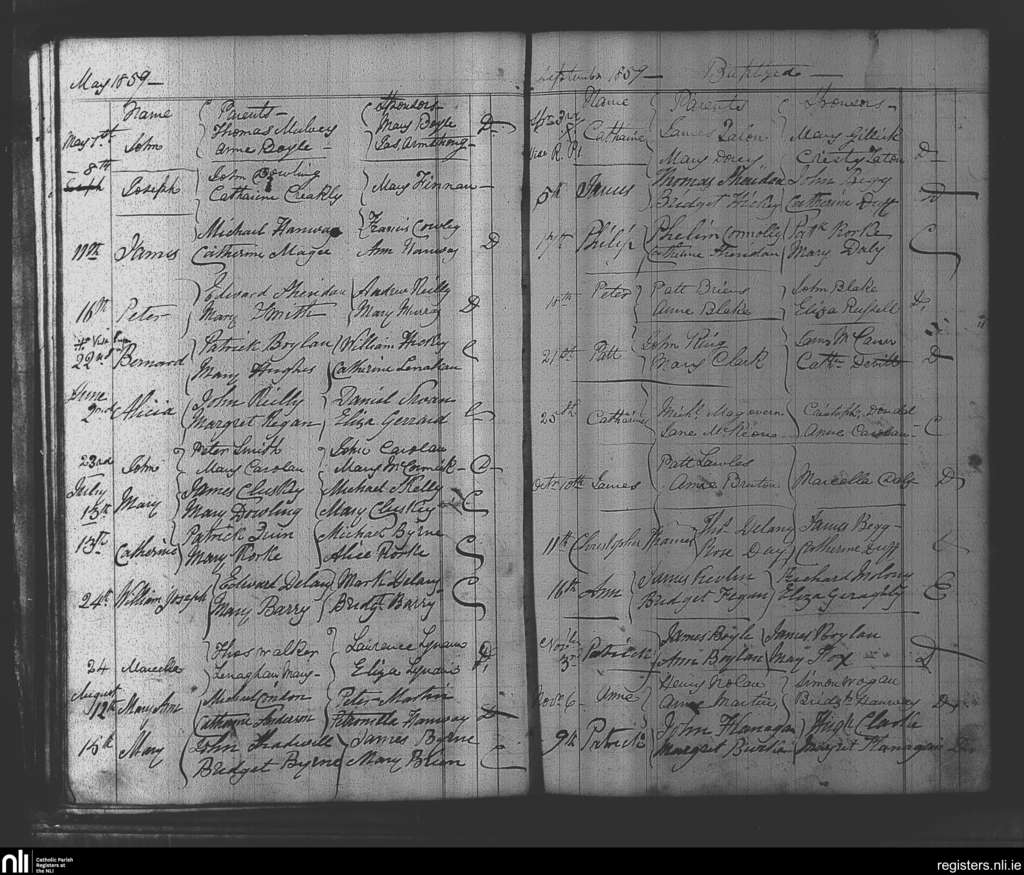 May 1859 —
Name Parents — Sponsors
May 1st John Thomas Mulvey Mary Boyle D
Anne Boyle — Jas. Armstrong —
— 8th Joseph John Dowling Mary Finnan —
Catharine Creakly
11th James Michael Hanway Francis Cowley
Catherine Magee Ann Hanway D
16th Peter Edward Sheridan Andrew Reilly
Mary Smith Mary Murray D
22nd Bernard Patrick Boylan William Hickey C
Mary Hughes Catherine Lenahan
June
2nd Alicia John Reilly Daniel
Margret Regan Eliza Gerrard C
23rd John Peter Smith John Carolan
Mary Carolan Mary McCormick — C
July
13th Mary James Cluskey Michael Skelly
Mary Dowling Mary Cluskey C
13th Catherine Patrick Quin Michael Byrne
Mary Rorke Alice Rorke C
24th William Joseph Edward Delany Mark Delany
Mary Barry Bridgt Barry C
24 Marcella Thos Walker Laurence
Lenaghan Mary — Eliza
August
12th Mary Anne Michael Peter Martin
Catharine Petronella Hanway D
15th Mary John Shadwell James Byrne
Bridget Byrne Mary Brien C
September 1859 — Baptized —
Name Parents Sponsors —
Catharine James Mary Gillick
Mary Cristy D
5th James Thomas Sheridan John Begg
Bridget Hickey Catharine Duff D
17th Philip Phelim Connolly Patk Rorke
Catharine Mary Daly C
18th Peter Patt Briens John Blake
Anne Blake Eliza Russell D
21st Patt John King James
Mary Clark Cathn D
25th Catharine Michl Magovern Cristophr
Jane McKeon Anne Carolan — C
Octr 10th James Patt Lawles Marcella Daly D
Anne
11th Christopher Francis Thos Delany James Begg —
Rose Day Catherine Duff C
16th Ann James Richard Molony
Bridget Fegan Eliza Geraghty C
Novr
3rd Patrick James Boyle James Boylan
Ann Boylan May Fox D
Novr 6 Anne Henry Nolan Simon Wogan
Anne Martin Bridgt Hanway D
9th Patrick John Flanagan Hugh Clarke
Margret Margret Flanagan
nli
Catholic Parish
Registers at
the NLI
registers.nli.ie